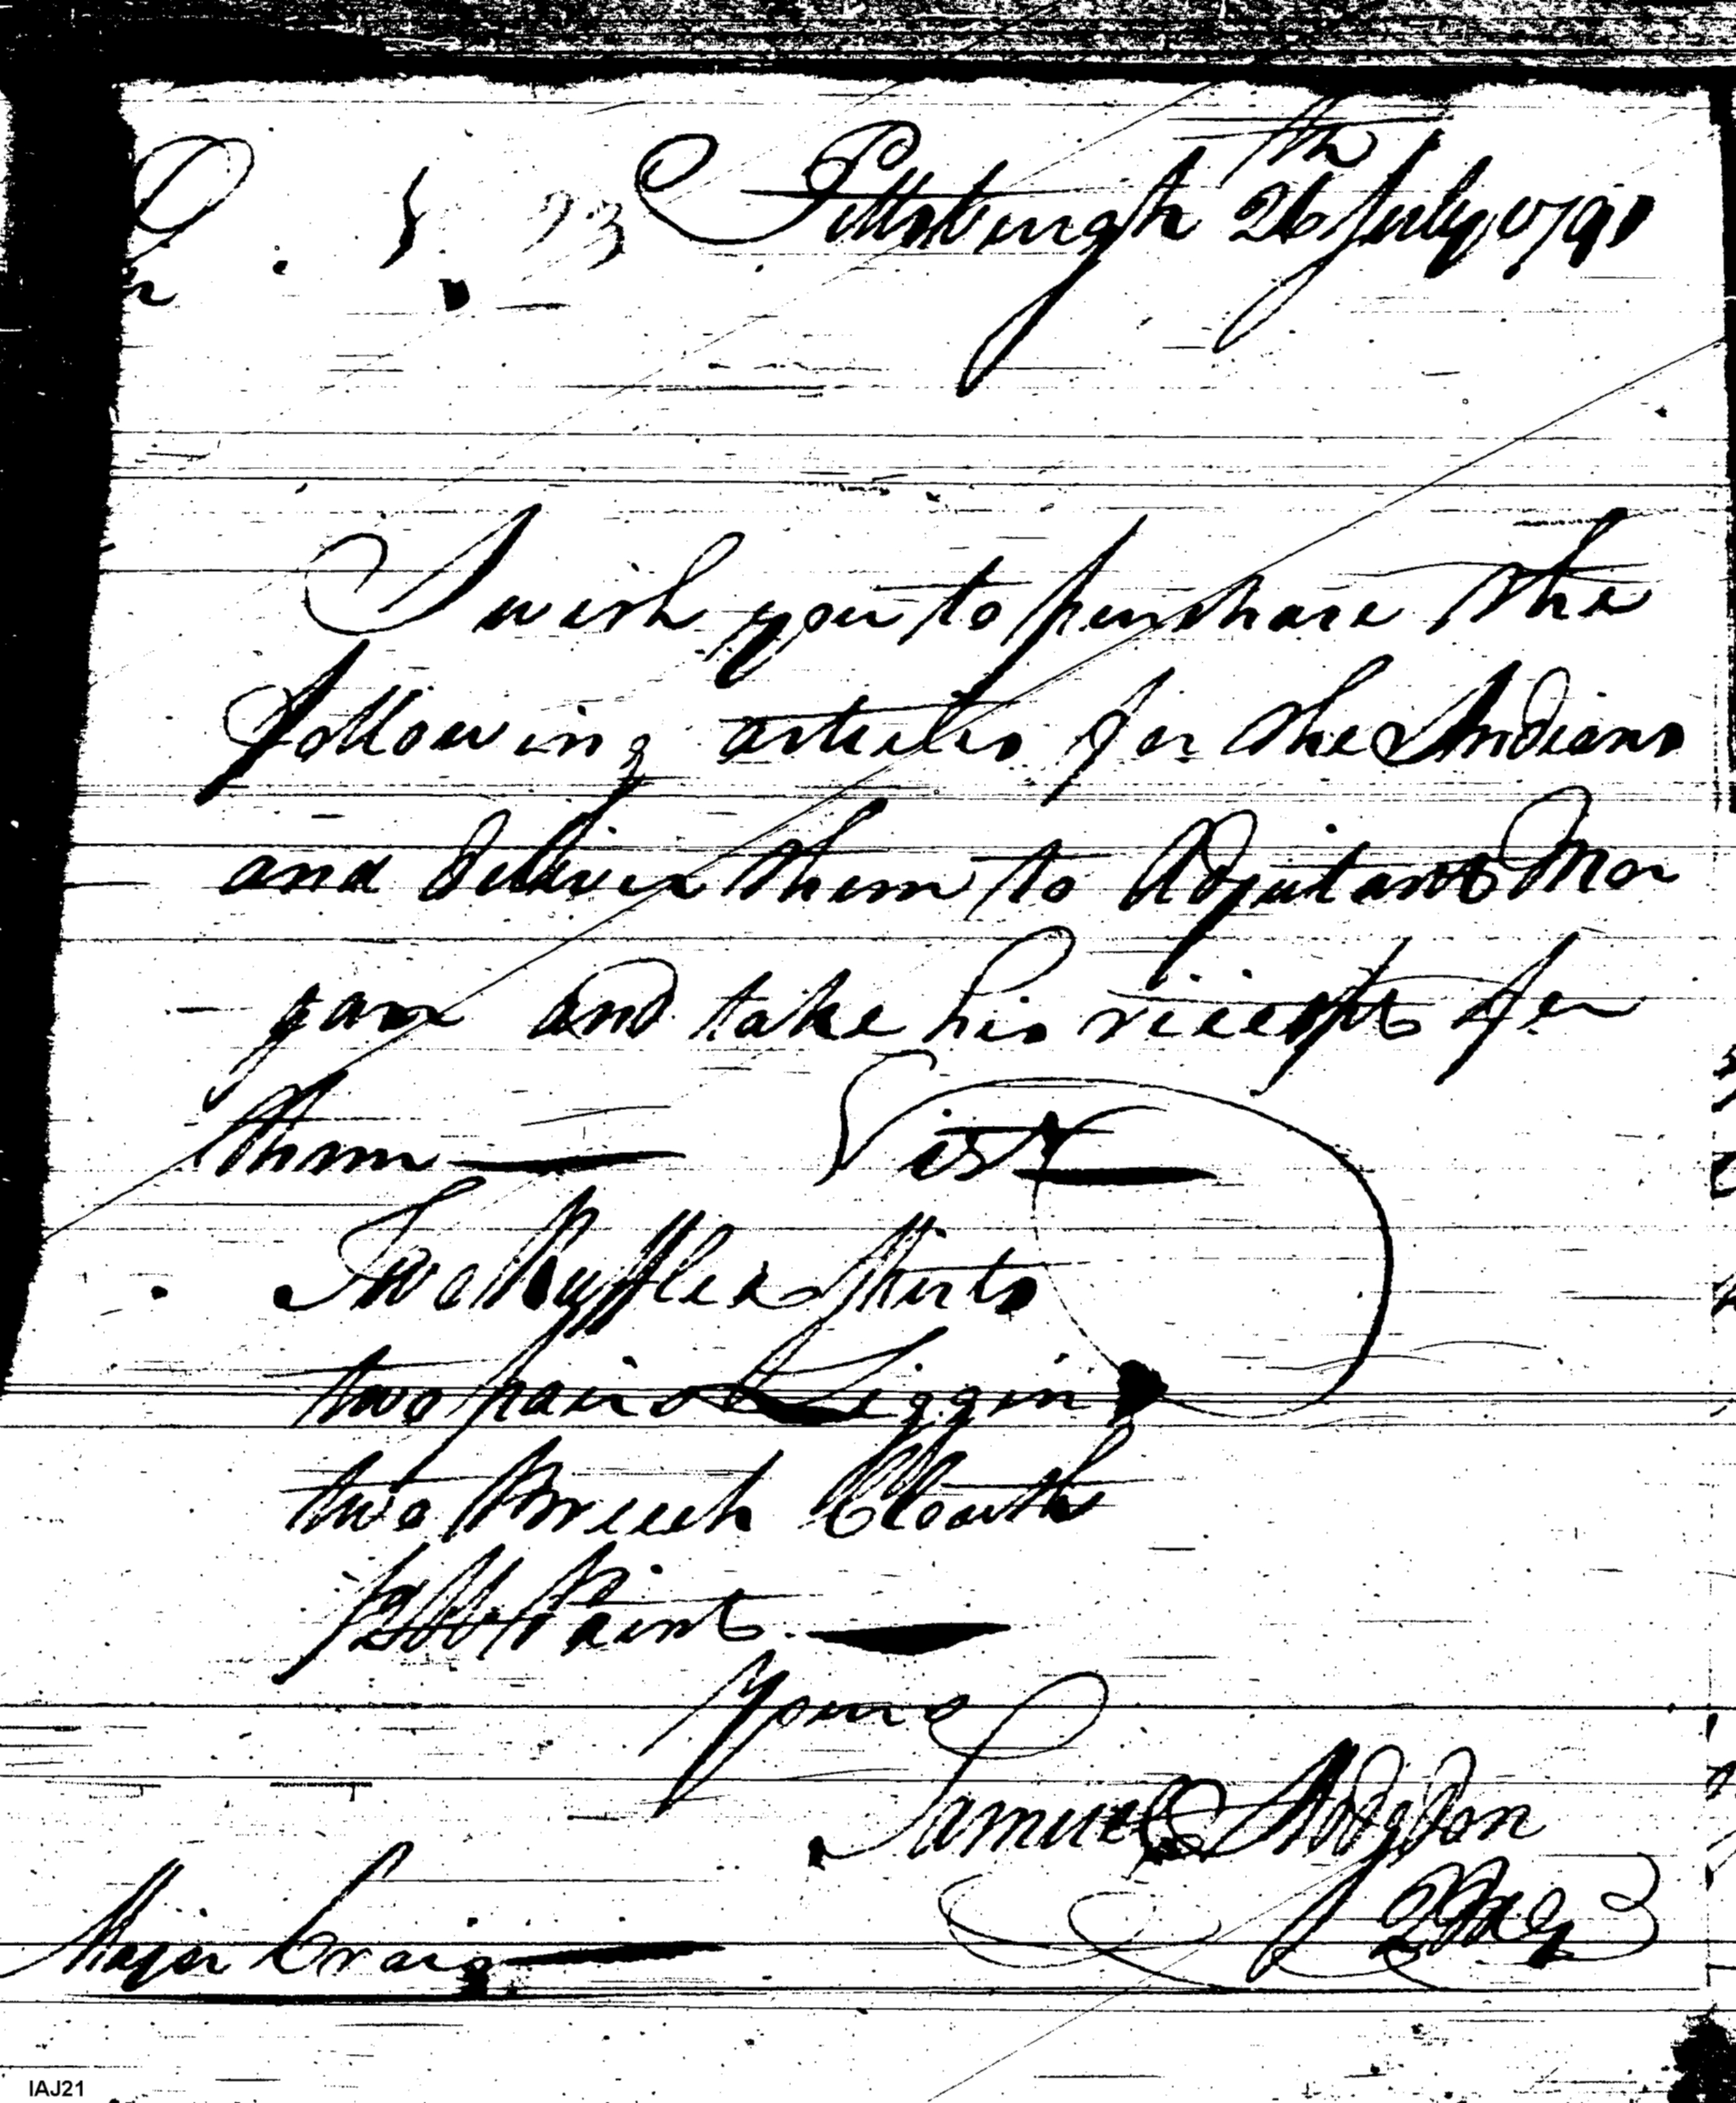 23 Pittsburgh 26th July 1791
I wish you to purchase the
following articles for the Indians
and deliver them to Adjutant Mor
gan and take his receipt for
them — Vist —
Two Ruffled Shirts
two pair Leggin
two Breech Clouth
lb Paint —
Yours
Samuel Hodgdon
QMG
Major Craig —
IAJ21